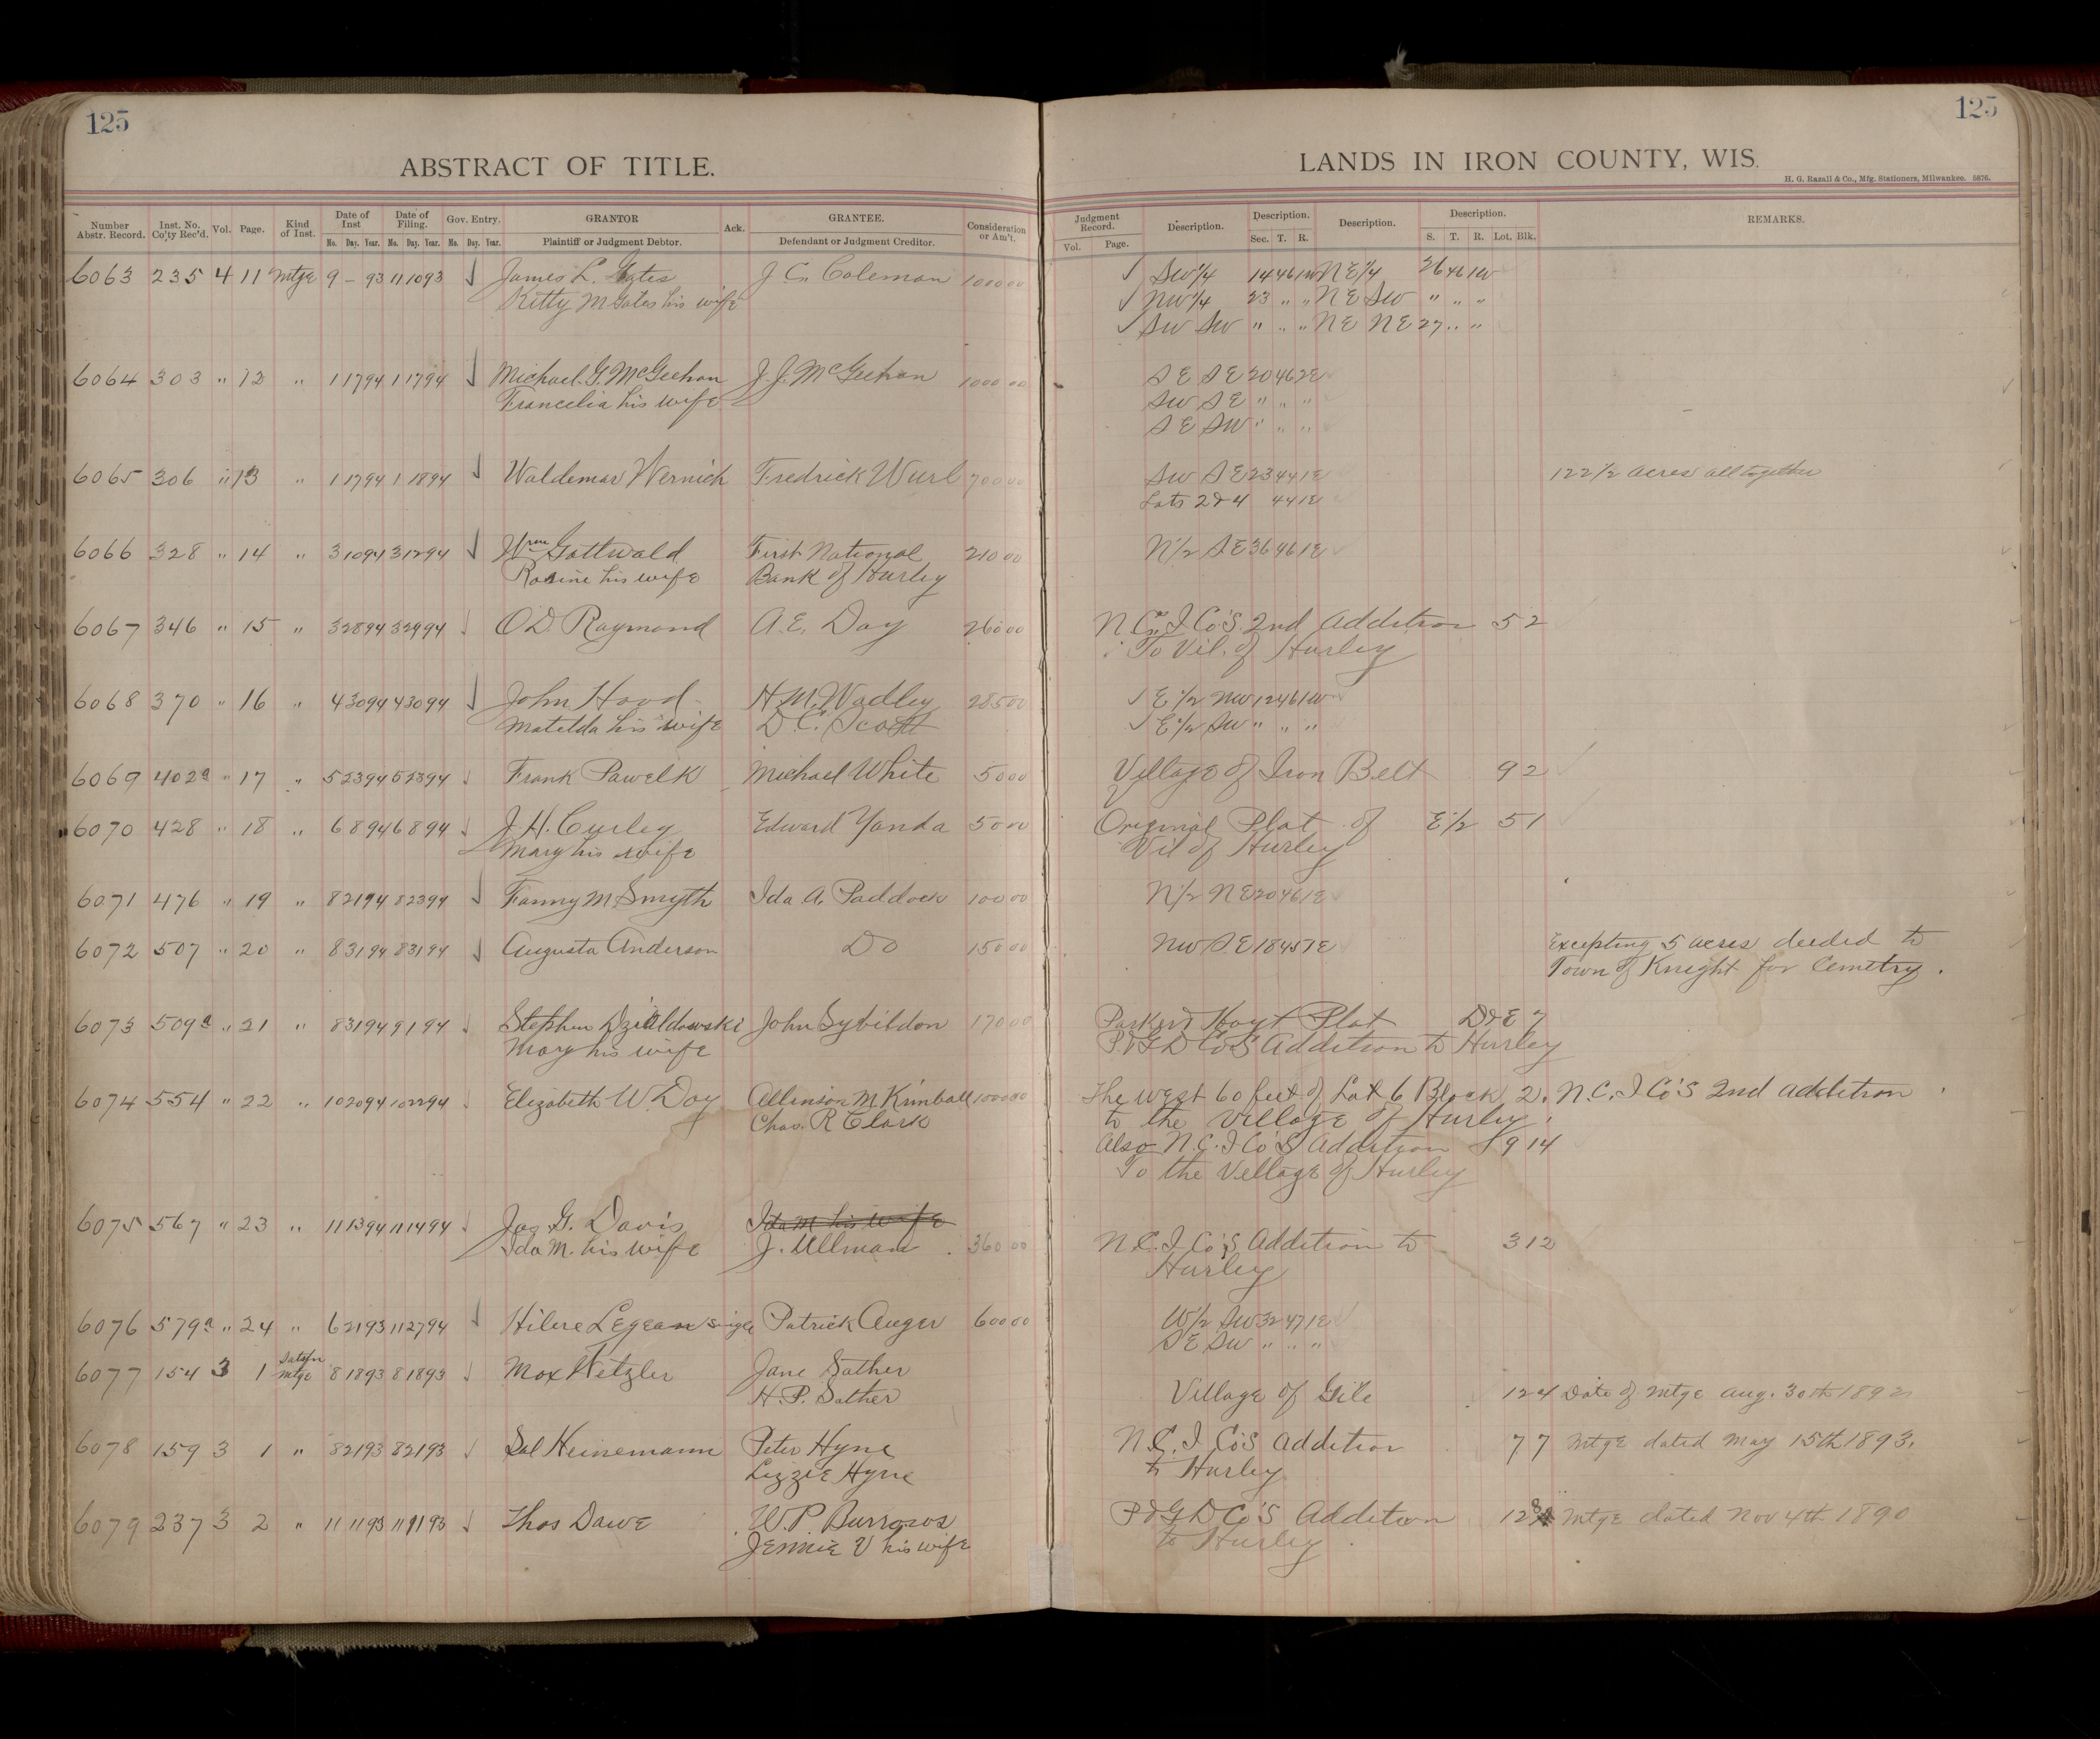 125
125
ABSTRACT OF TITLE.
LANDS IN IRON COUNTY, WIS.
H. G. Razall & Co., Mfg. Stationers, Milwaukee. 5876.
Number Abstr. Record. Inst. No. Co'ty Rec'd. Vol. Page. Kind of Inst. Date of Inst Mo. Day. Year. Date of Filing. Mo. Day. Year. Gov. Entry. Mo. Day. Year. GRANTOR Plaintiff or Judgment Debtor. Ack. GRANTEE. Defendant or Judgment Creditor. Consideration or Am't. Judgment Record. Vol. Page. Description. Description. Sec. T. R. Description. Description. S. T. R. Lot. Blk. REMARKS.
6063 235 4 11 Mtge 9 – 93 11 10 93 James L. Gates J C. Coleman 1000 00 SW 1/4 14 46 1W NE 1/4 26 46 1W
Kitty M Gates his wife NW 1/4 23 " " NE SW " " "
SW SW " " " NE NE 27 " "
6064 303 " 12 " 1 17 94 1 17 94 Michael G. McGeehan J. J. McGeehan 1000 00 SE SE 20 46 2E
Francelia his wife SW SE " " "
SE SW " " "
6065 306 " 13 " 1 17 94 1 18 94 Waldemar Wernich Fredrick Wurl 700 00 SW SE 23 44 1E 122 1/2 acres alltogether
Lots 2 & 4 44 1E
6066 328 " 14 " 3 10 94 3 12 94 Wm Gottwald First National 210 00 N 1/2 SE 36 46 1E
Rosine his wife Bank of Hurley
6067 346 " 15 " 3 28 94 3 29 94 O D. Raymond A. E. Day 260 00 N. C. I Co's 2nd Addition 5 2
To Vil. of Hurley
6068 370 " 16 " 4 30 94 4 30 94 John Hood H. M. Wadley 285 00 E 1/2 NW 12 46 1W
Matilda his wife D. C. Scott E 1/2 SW " " "
6069 402a " 17 " 5 23 94 5 23 94 Frank Pawelk Michael White 50 00 Village of Iron Belt 9 2
6070 428 " 18 " 6 8 94 6 8 94 J. H. Curley Edward Yanda 50 00 Original Plat of E 1/2 5 1
Mary his wife Vil of Hurley
6071 476 " 19 " 8 21 94 8 23 94 Fanny M Smyth Ida A. Paddock 100 00 N 1/2 NE 20 46 1E
6072 507 " 20 " 8 31 94 8 31 94 Augusta Anderson Do 150 00 NW SE 18 45 1E Excepting 5 acres deeded to
Town of Knight for Cemetry.
6073 509a " 21 " 8 31 94 9 1 94 Stephen Dzialdowski John Sybildon 170 00 Parker & Hoyt Plat D & E 7
Mary his wife P. & G D Co's Addition to Hurley
6074 554 " 22 " 10 20 94 10 22 94 Elizabeth W. Day Allinson M. Kimball 1000 00 The west 60 feet of Lot 6 Block 2. N. C. I Co's 2nd addition
Chas. R Clark to the village of Hurley.
Also N. C. I Co's Addition 9 14
To the Village of Hurley
6075 567 " 23 " 11 13 94 11 14 94 Jas G. Davis Ida M his wife
Ida M. his wife J. Ullman 360 00 N. C. I Co's Addition to 3 12
Hurley
6076 579a " 24 " 6 21 93 11 27 94 Hilere Legean single Patrick Auger 600 00 W 1/2 SW 32 47 1E
SE SW " " "
6077 154 3 1 Satsfn Mtge 8 18 93 8 18 93 Max Hetzler Jane Sather
H. P. Sather Village of Gile 12 4 Date of Mtge Aug. 30th 1892
6078 159 3 1 " 8 21 93 8 21 93 Sol Heinemann Peter Hyne N. C. I Co's Addition 7 7 Mtge dated May 15th 1893.
Lizzie Hyne to Hurley
6079 237 3 2 " 11 11 93 11 11 93 Thos Dawe W. P. Burrows P & G D Co's Addition 12 8 Mtge dated Nov 4th 1890
Jennie V his wife to Hurley